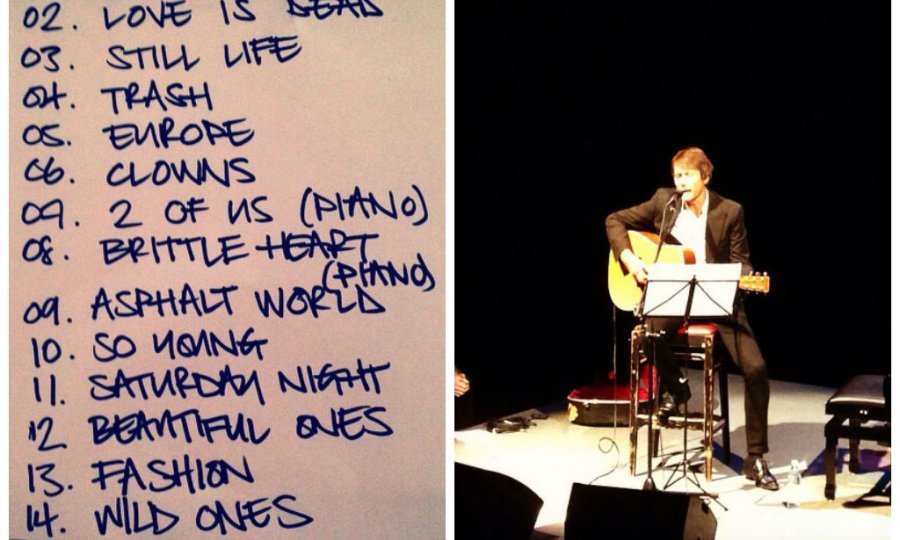 02. LOVE IS DEAD
03. STILL LIFE
04. TRASH
05. EUROPE
06. CLOWNS
09. 2 OF US (PIANO)
08. BRITTLE HEART
(PIANO)
09. ASPHALT WORLD
10. SO YOUNG
11. SATURDAY NIGHT
12 BEAUTIFUL ONES
13. FASHION
14. WILD ONES